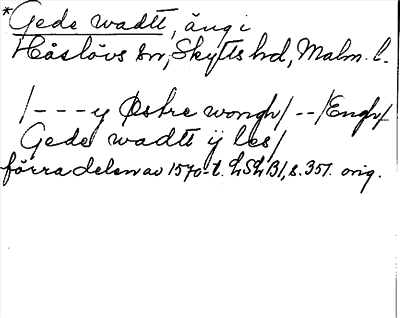 *Gede wadtt, äng i
Håslövs sn, Skytts hd, Malm. l.
/---y Østre wongh/--/Engh/
Gede wadtt ÿ les/
förra delen av 1570-t. LSLB1, s. 351. orig.